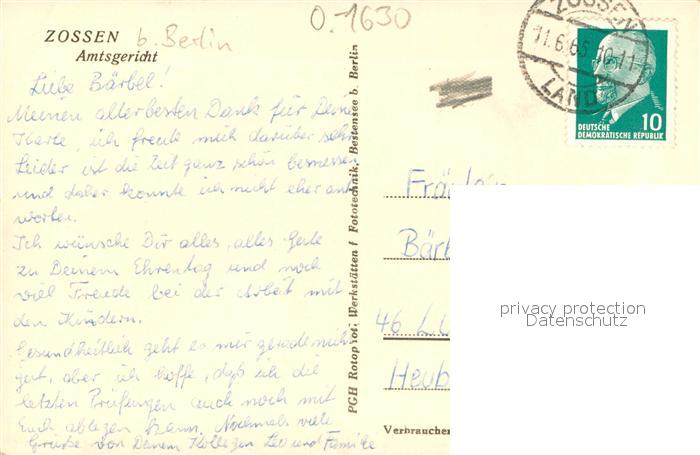 ZOSSEN b. Berlin
Amtsgericht
O.1630
ZOSSEN
11.6.65.10-11
LAND
10
DEUTSCHE
DEMOKRATISCHE REPUBLIK
Liebe Bärbel!
Meinen allerbesten Dank für Deine
Karte ich freute mich darüber sehr
Leider ist die Zeit ganz schön bemessen
und daher konnte ich nicht eher ant
worten.
Ich wünsche Dir alles, alles Gute
zu Deinem Ehrentag und noch
viel Freude bei der Arbeit mit
den Kindern.
Gesundheitlich geht es mir gerade nicht
gut, aber ich hoffe, daß ich die
letzten Prüfungen auch noch mit
Euch ablegen kann. Nochmals viele
Grüße von Deinem Kollegen Leo und Familie
PGH Rotophot, Werkstätten f Fototechnik, Bestensee b. Berlin
Fräulein
Bärb
46 L
Heub
Verbraucher
privacy protection
Datenschutz